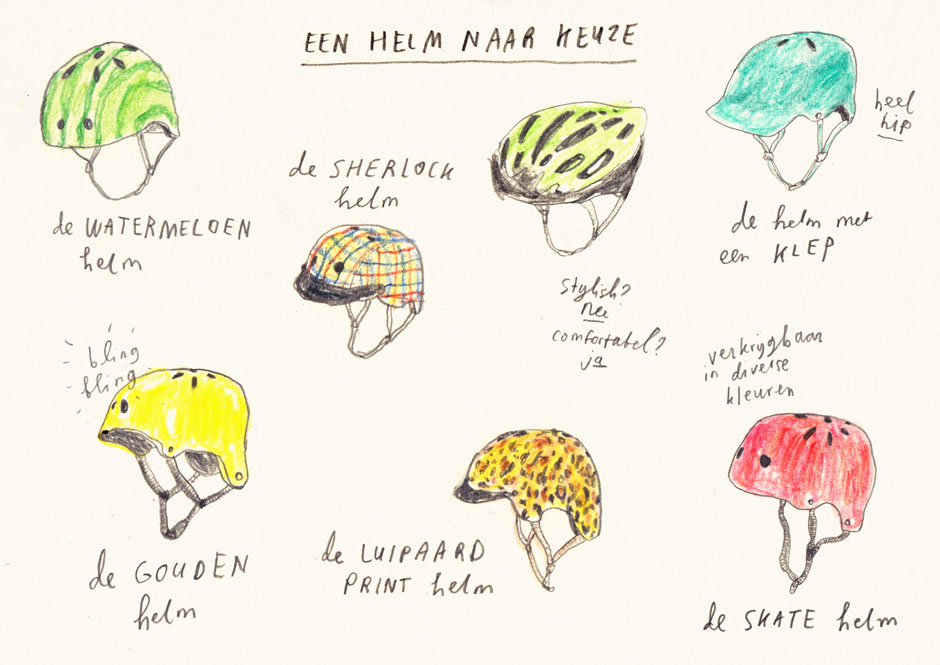 EEN HELM NAAR KEUZE
de WATERMELOEN
helm
de SHERLOCK
helm
stylish?
nee
comfortabel?
ja
heel
hip
de helm met
een KLEP
bling
bling
de GOUDEN
helm
de LUIPAARD
PRINT helm
verkrijgbaar
in diverse
kleuren
de SKATE helm